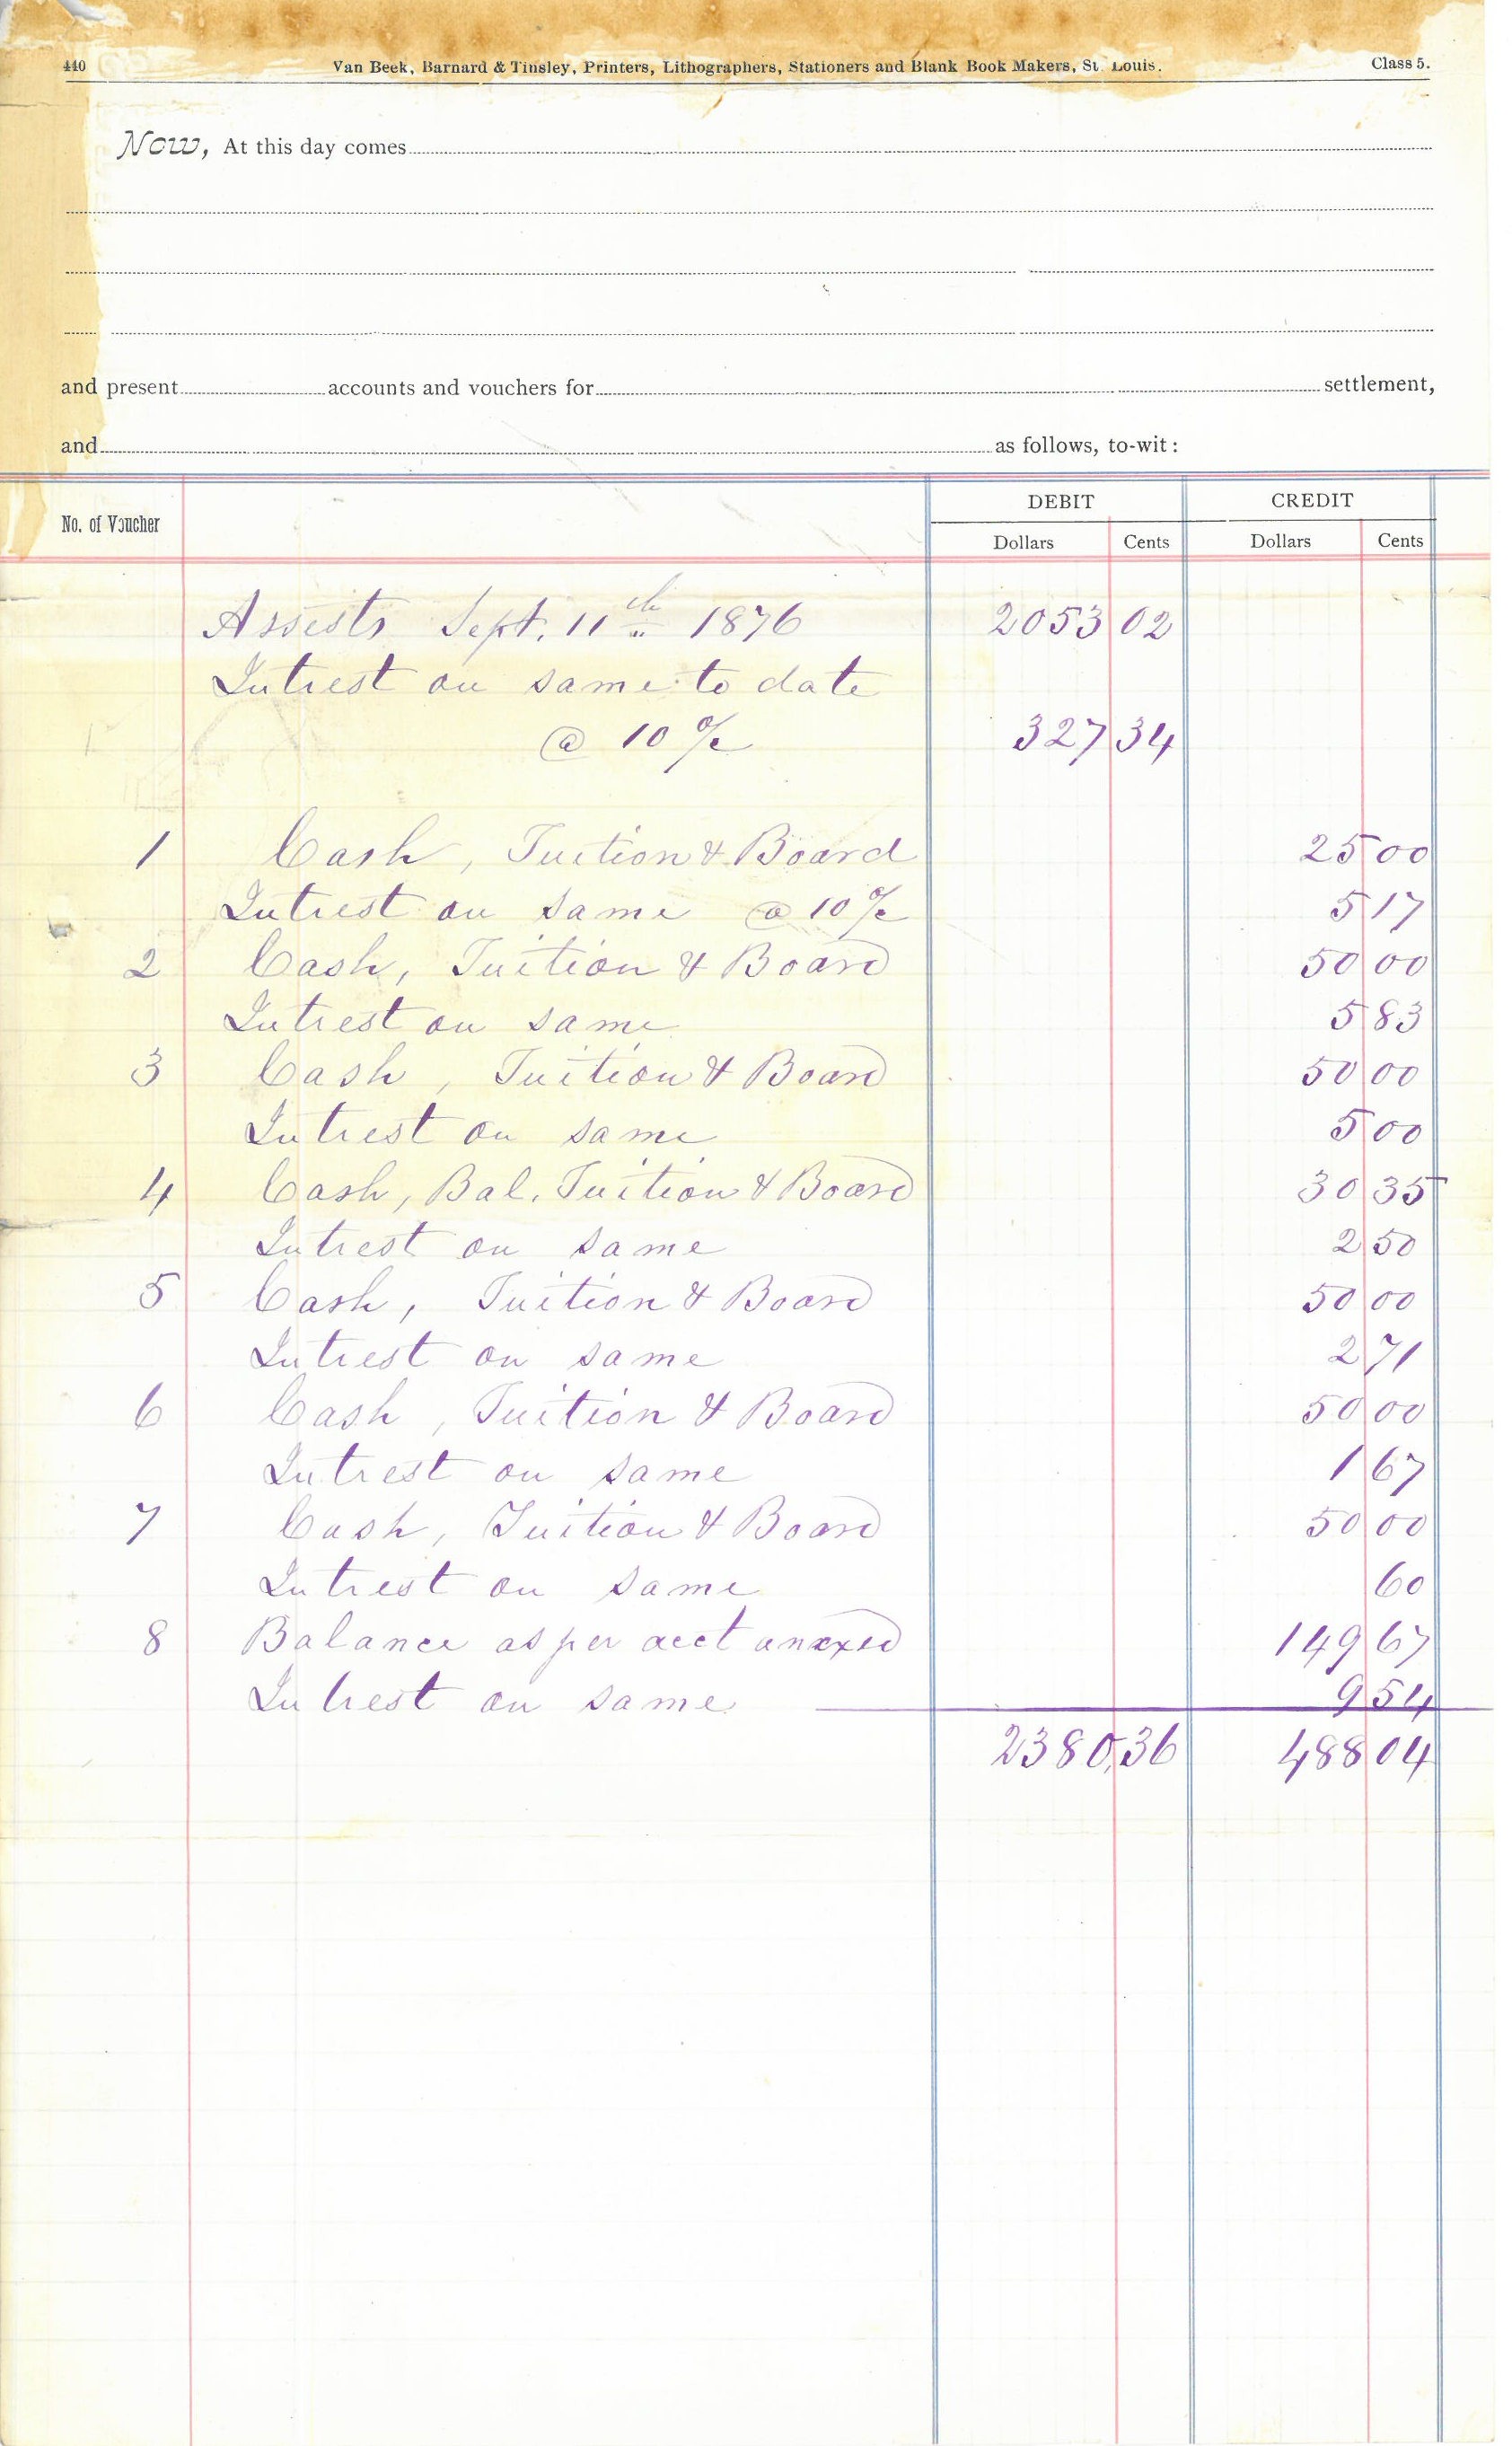 440 Van Beek, Barnard & Tinsley, Printers, Lithographers, Stationers and Blank Book Makers, St. Louis. Class 5.
Now, At this day comes
and present accounts and vouchers for settlement,
and as follows, to-wit:
No. of Voucher DEBIT CREDIT
Dollars Cents Dollars Cents
Assists Sept. 11th 1876 2053 02
Intrest on same to date
@ 10 % 327 34
1 Cash, Tuition & Board 25 00
Intrest on same @ 10 % 5 17
2 Cash, Tuition & Board 50 00
Intrest on same 5 83
3 Cash, Tuition & Board 50 00
Intrest on same 5 00
4 Cash, Bal. Tuition & Board 30 35
Intrest on same 2 50
5 Cash, Tuition & Board 50 00
Intrest on same 2 71
6 Cash, Tuition & Board 50 00
Intrest on same 1 67
7 Cash, Tuition & Board 50 00
Intrest on same 60
8 Balance as per acct anexed 149 67
Intrest on same 9 54
2380,36 488 04